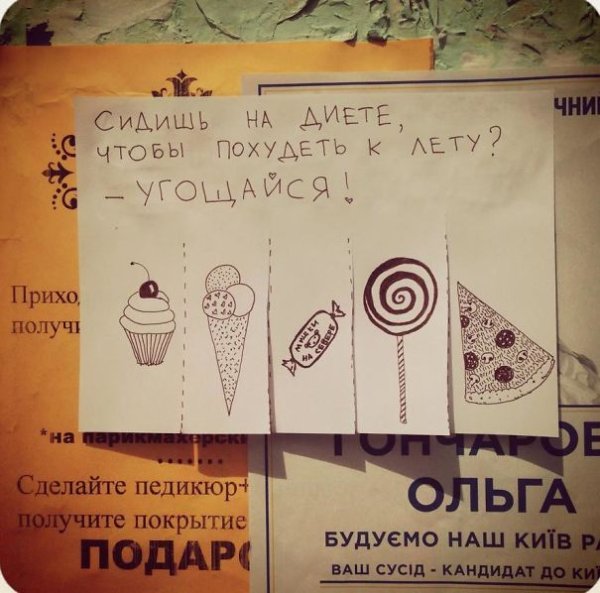 СИДИШЬ НА ДИЕТЕ,
ЧТОБЫ ПОХУДЕТЬ К ЛЕТУ?
– УГОЩАЙСЯ!
МИШКИ
НА СЕВЕРЕ
*на парикмахерски
Сделайте педикюр+
получите покрытие
ОЛЬГА
БУДУЄМО НАШ КИЇВ
ВАШ СУСІД - КАНДИДАТ ДО